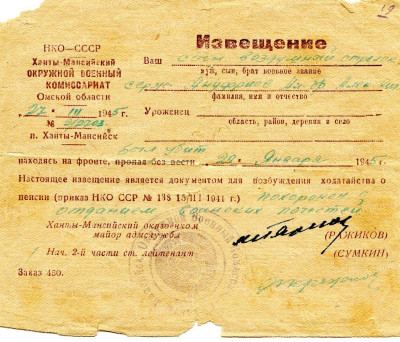 19
НКО—СССР
Ханты-Мансийский
ОКРУЖНОЙ ВОЕННЫЙ
КОМИССАРИАТ
Омской области
27 III 1945 г.
№
п. Ханты-Мансийск
Извещение
Ваш сын воздушный стрелок
муж, сын, брат военное звание
фамилия, имя и отчество
Уроженец
область, район, деревня и село
был убит
находясь на фронте, пропал без вести 29 Января 1945 г.
Настоящее извещение является документом для возбуждения ходатайства о
пенсии (приказ НКО СССР № 138 15/III 1941 г.) похоронен с
отданием воинских почестей
Ханты-Мансийский окрвоенком
майор адмслужбы
(РАЖИКОВ)
Нач. 2-й части ст. лейтенант
(СУМКИН)
Заказ 450.